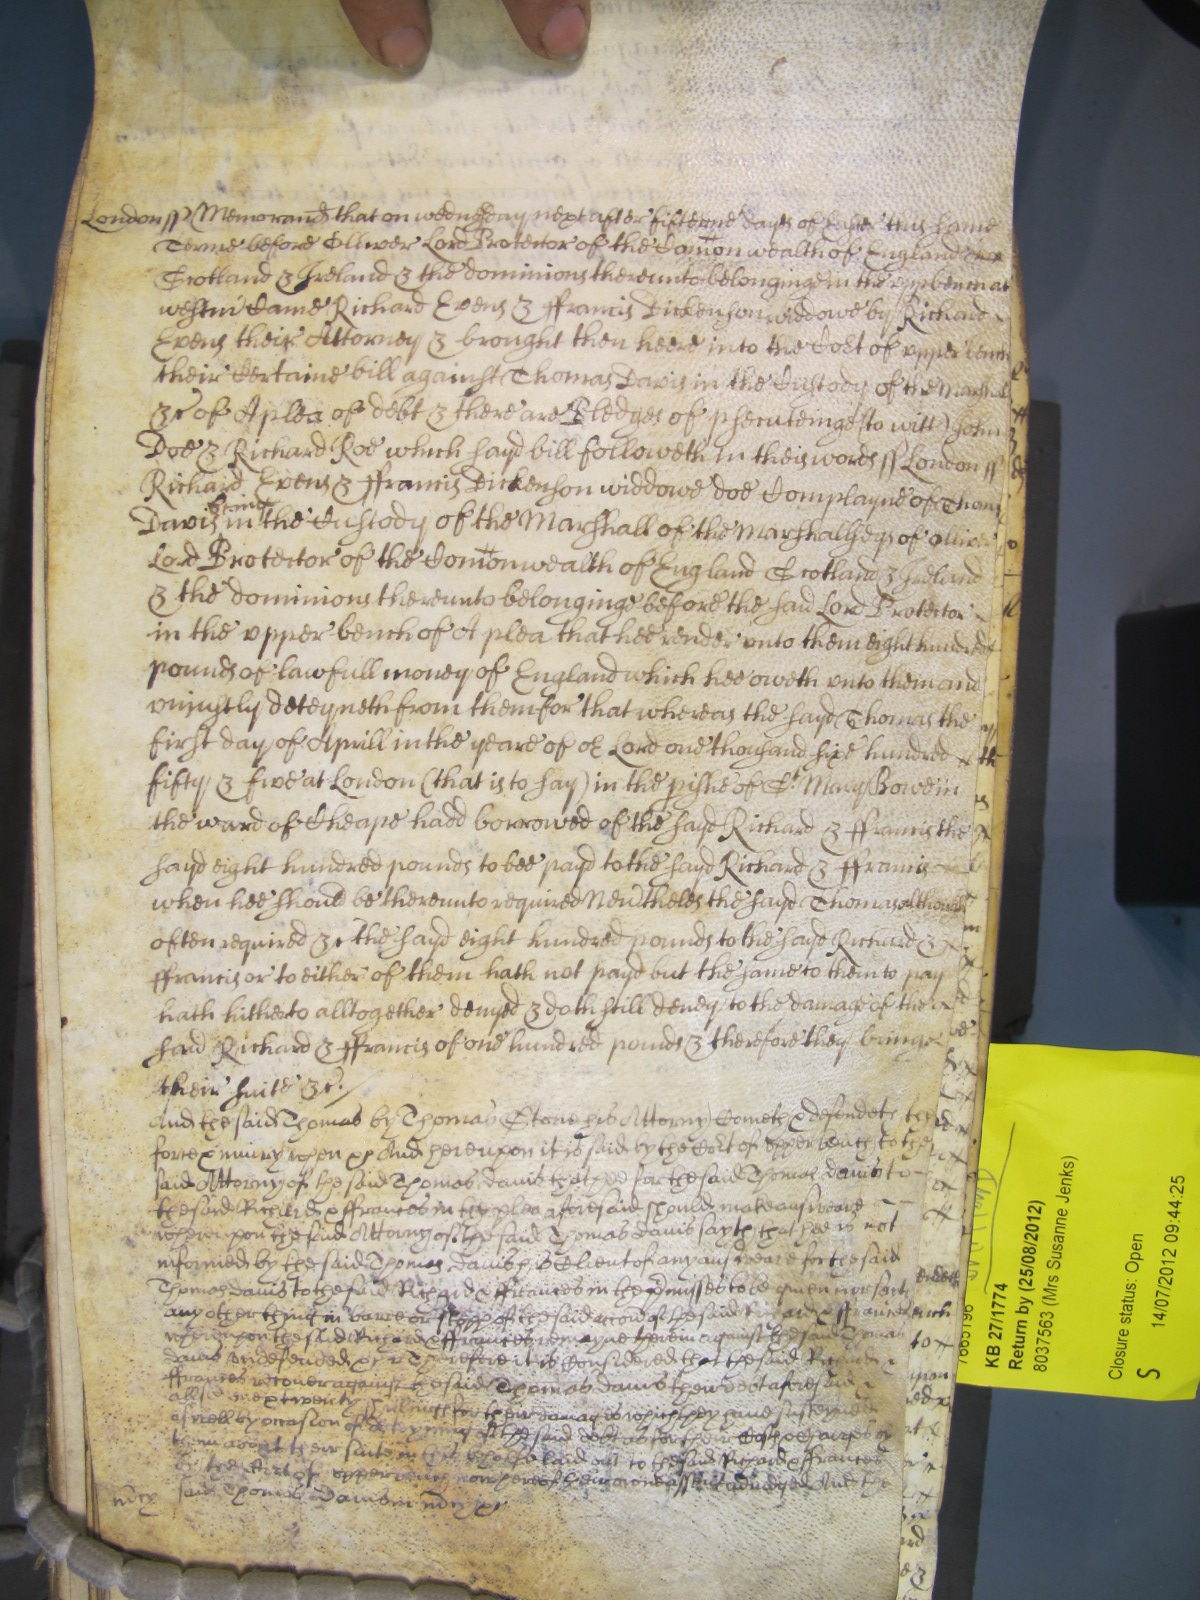 London ss Memorand that on wednesday next after fifteene dayes of Easter this same
Terme before Olliver Lord Protector of the Comon wealth of England
Scotland & Ireland & the dominions thereunto belonginge in the vpp bench at
westm Came Richard Evens & ffrancis Dickenson widdowe by Richard
Evens their Attorney & brought then heere into the Cort of vpper bench
their Certaine bill against Thomas Davis in the Custody of the Marshall
&c of A plea of debt & there are Pledges of psecuteinge (to witt) John
Doe & Richard Roe which sayd bill followeth in theis words ss London ss
Richard Evens & ffrancis Dickenson widdowe doe Complayne of Thomas
Davis being in the Custody of the Marshall of the Marshallseys of Olliver
Lord Protector of the Comonwealth of England Scotland & Ireland
& the dominions thereunto belonginge before the said Lord Protector
in the vpper bench of A plea that hee render vnto them eight hundred
pounds of lawfull money of England which hee oweth vnto them and
vniustly deteyneth from them for that whereas the sayd Thomas the
first day of Aprill in the yeare of or Lord one thousand sixe hundred
fifty & five at London (that is to say) in the pishe of St Mary Bowe in
the ward of Cheape hadd borrowed of the sayd Richard & ffrancis the
sayd eight hundred pounds to bee payd to the sayd Richard & ffrancis
when hee should be thereunto required Nevtheles the sayd Thomas although
often required &c the sayd eight hundred pounds to the sayd Richard &
ffrancis or to either of them hath not payd but the same to them to pay
hath hitherto alltogether denyed & doth still deney to the damage of the
said Richard & ffrancis of one hundred pounds & therefore they bringe
their suite &c.
And the said Thomas by Thomas Stone his Attorny Cometh & defendeth the
force & iniury when &c And hereupon it is said by the Cort of vpper bench to the
said Attorny of the said Thomas Davis that hee for the said Thomas Davis to
the said Richard & ffrances in the plea aforesaid should make answeare
whereupon the said Attorny of the said Thomas Davis sayth that hee is not
informed by the said Thomas Davis his Client of any answeare for the said
Thomas Davis to the said Richard & ffrances in the pmisses to be given nor saith
any other thing in barre or of the said accon of the said Richard & ffrances
whereupon the said Richard & ffrances remayne therein against the said Thomas
Davis vndefended &c Therefore it is Considered that the said Richard &
ffrances recover against the said Thomas Davis their debt aforesaid &
allsoe twenty shillings for their damages which they have susteyned
aswell by occasion of deteyning of the said debt as for their Costs & Charges by
them about their suite in this behalfe laid out to the said Richard & ffrances
by the Cort of vpper bench now here of their owne assent adiudged And the
said Thomas Davis in mcy &c
mcy
KB 27/1774
Return by (25/08/2012)
8037563 (Mrs Susanne Jenks)
Closure status: Open
S 14/07/2012 09:44:25